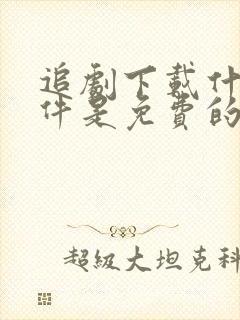 追劇下載什
件是免費的
超級大坦克科